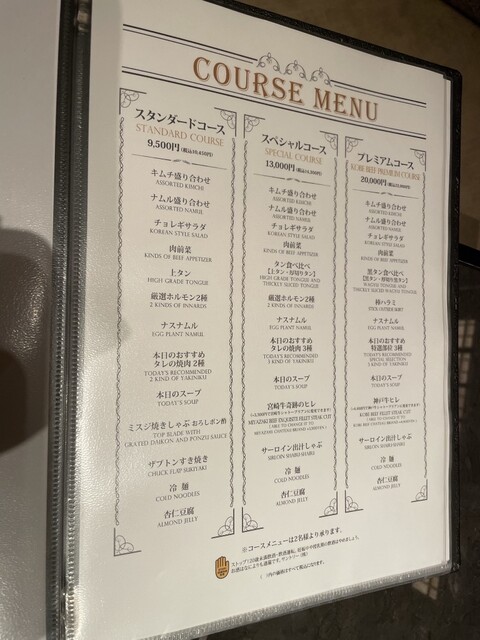 COURSE MENU
スタンダードコース
STANDARD COURSE
9,500円(税込10,450円)
キムチ盛り合わせ
ASSORTED KIMCHI
ナムル盛り合わせ
ASSORTED NAMUL
チョレギサラダ
KOREAN STYLE SALAD
肉前菜
KINDS OF BEEF APPETIZER
上タン
HIGH GRADE TONGUE
厳選ホルモン2種
2 KINDS OF INNARDS
ナスナムル
EGG PLANT NAMUL
本日のおすすめ
タレの焼肉 2種
TODAY'S RECOMMENDED
2 KIND OF YAKINIKU
本日のスープ
TODAY'S SOUP
ミスジ焼きしゃぶ おろしポン酢
TOP BLADE WITH
GRATED DAIKON AND PONZU SAUCE
ザブトンすき焼き
CHUCK FLAP SUKIYAKI
冷 麺
COLD NOODLES
杏仁豆腐
ALMOND JELLY
スペシャルコース
SPECIAL COURSE
13,000円(税込14,300円)
キムチ盛り合わせ
ASSORTED KIMCHI
ナムル盛り合わせ
ASSORTED NAMUL
チョレギサラダ
KOREAN STYLE SALAD
肉前菜
KINDS OF BEEF APPETIZER
タン食べ比べ
【上タン・厚切りタン】
HIGH GRADE TONGUE AND
THICKLY SLICED TONGUE
厳選ホルモン2種
2 KINDS OF INNARDS
ナスナムル
EGG PLANT NAMUL
本日のおすすめ
タレの焼肉 3種
TODAY'S RECOMMENDED
3 KIND OF YAKINIKU
本日のスープ
TODAY'S SOUP
宮崎牛奇跡のヒレ
MIYAZAKI BEEF EXQUISITE FILLET STEAK CUT
サーロイン出汁しゃぶ
SIRLOIN SHABUSHABU
冷 麺
COLD NOODLES
杏仁豆腐
ALMOND JELLY
プレミアムコース
KOBE BEEF PREMIUM COURSE
20,000円(税込22,000円)
キムチ盛り合わせ
ASSORTED KIMCHI
ナムル盛り合わせ
ASSORTED NAMUL
チョレギサラダ
KOREAN STYLE SALAD
肉前菜
KINDS OF BEEF APPETIZER
黒タン食べ比べ
【黒タン・厚切り黒タン】
WAGYU TONGUE AND
THICKLY SLICED WAGYU TONGUE
棒ハラミ
STICK OUTSIDE SKIRT
ナスナムル
EGG PLANT NAMUL
本日のおすすめ
特選部位 3種
TODAY'S RECOMMENDED
SPECIAL SELECTION
3 KIND OF YAKINIKU
本日のスープ
TODAY'S SOUP
神戸牛ヒレ
KOBE BEEF FILLET STEAK CUT
サーロイン出汁しゃぶ
SIRLOIN SHABUSHABU
冷 麺
COLD NOODLES
杏仁豆腐
ALMOND JELLY
※コースメニューは2名様より承ります。